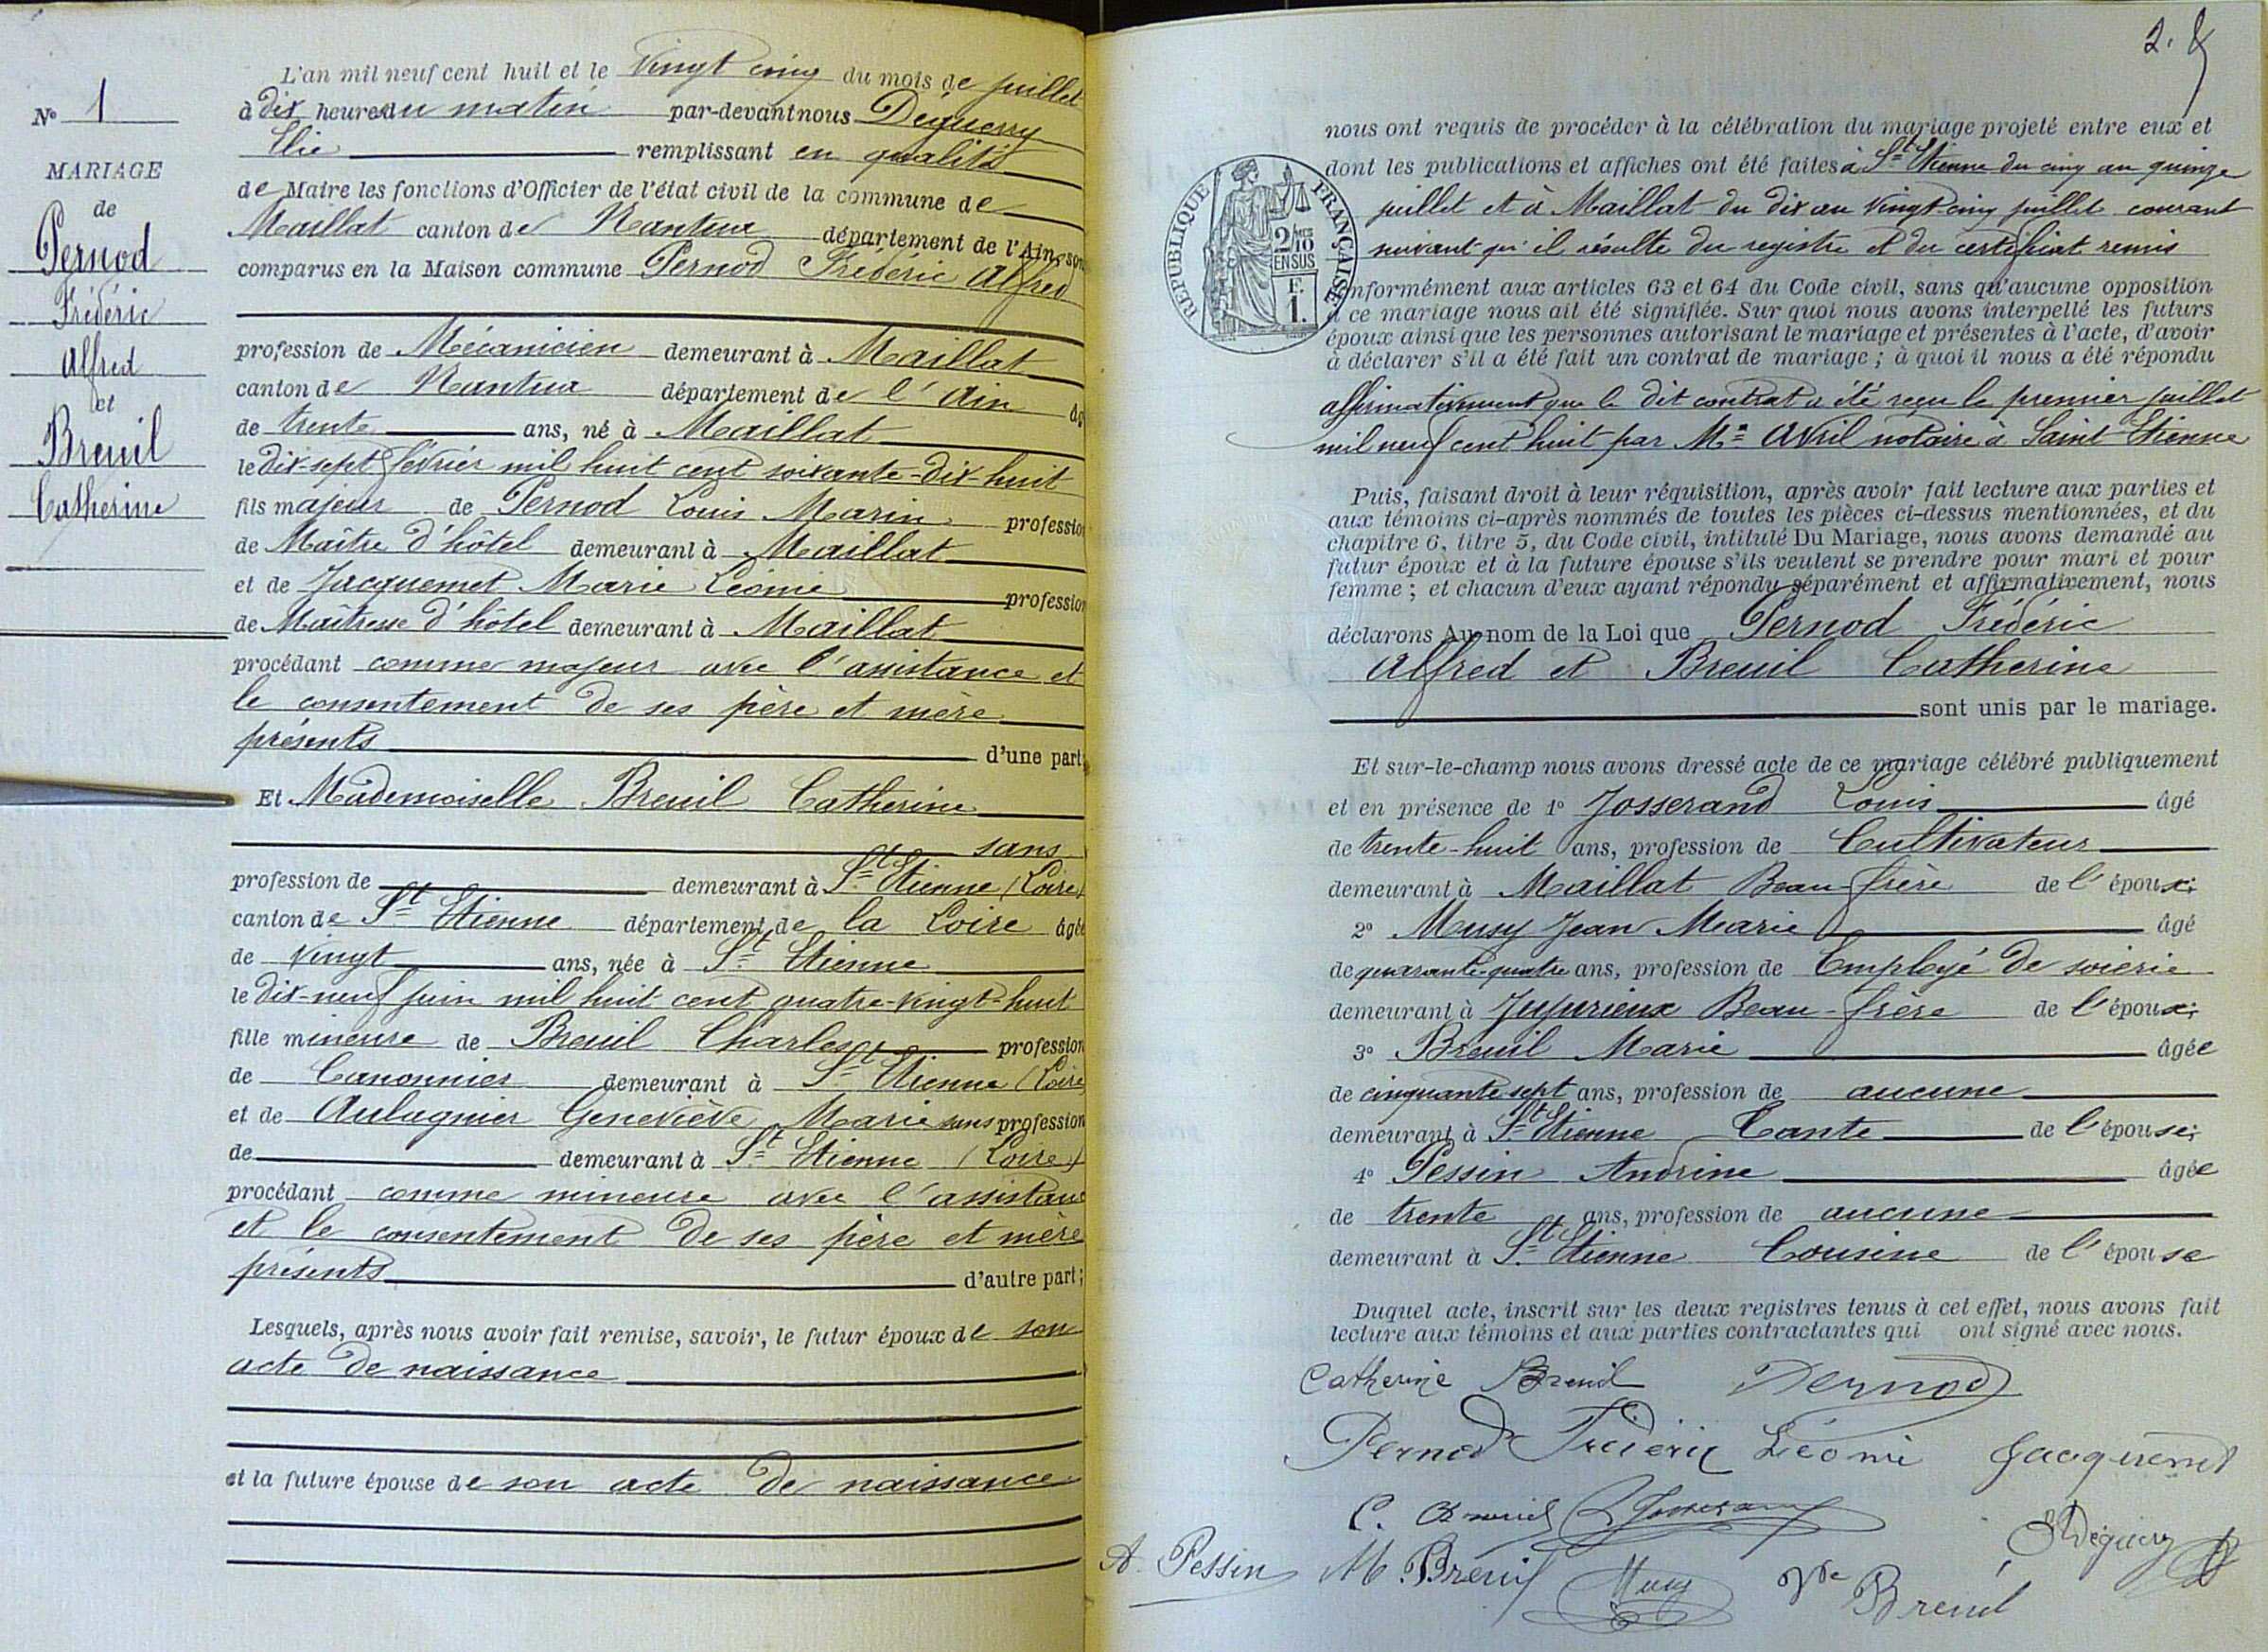 N° 1
MARIAGE
de
Pernod
Frédéric
Alfred
et
Breuil
Catherine
L'an mil neuf cent huit et le vingt cinq du mois de juillet
à dix heures du matin par-devant nous Déguerry
Elie remplissant en qualité
de Maire les fonctions d'Officier de l'état civil de la commune de
Maillat canton de Nantua département de l'Ain, son
comparus en la Maison commune Pernod Frédéric Alfred
profession de Mécanicien demeurant à Maillat
canton de Nantua département de l'Ain âg
de trente ans, né à Maillat
le dix-sept février mil huit cent soixante-dix-huit
fils majeur de Pernod Louis Marin profession
de Maître d'hôtel demeurant à Maillat
et de Jacquemet Marie Léonie profession
de Maîtresse d'hôtel demeurant à Maillat
procédant comme majeur avec l'assistance et
le consentement de ses père et mère
présents d'une part;
Et Mademoiselle Breuil Catherine
sans
profession de demeurant à St Etienne (Loire)
canton de St Etienne département de la Loire âgée
de vingt ans, née à St Etienne
le dix-neuf juin mil huit cent quatre-vingt-huit
fille mineure de Breuil Charles profession
de Canonnier demeurant à St Etienne (Loire)
et de Aulagnier Geneviève Marie sans profession
de demeurant à St Etienne (Loire)
procédant comme mineure avec l'assistance
et le consentement de ses père et mère
présents d'autre part;
Lesquels, après nous avoir fait remise, savoir, le futur époux de son
acte de naissance
et la future épouse de son acte de naissance
2.
nous ont requis de procéder à la célébration du mariage projeté entre eux et
dont les publications et affiches ont été faites à St Etienne du cinq au quinze
juillet et à Maillat du dix au vingt-cinq juillet courant
suivant qu'il résulte du registre et du certificat remis
RÉPUBLIQUE FRANÇAISE
2/10 EN SUS
F. 1.
conformément aux articles 63 et 64 du Code civil, sans qu'aucune opposition
à ce mariage nous ait été signifiée. Sur quoi nous avons interpellé les futurs
époux ainsi que les personnes autorisant le mariage et présentes à l'acte, d'avoir
à déclarer s'il a été fait un contrat de mariage ; à quoi il nous a été répondu
affirmativement que le dit contrat a été reçu le premier juillet
mil neuf cent huit par Me Avril notaire à Saint Etienne
Puis, faisant droit à leur réquisition, après avoir fait lecture aux parties et
aux témoins ci-après nommés de toutes les pièces ci-dessus mentionnées, et du
chapitre 6, titre 5, du Code civil, intitulé Du Mariage, nous avons demandé au
futur époux et à la future épouse s'ils veulent se prendre pour mari et pour
femme ; et chacun d'eux ayant répondu séparément et affirmativement, nous
déclarons Au nom de la Loi que Pernod Frédéric
Alfred et Breuil Catherine
sont unis par le mariage.
Et sur-le-champ nous avons dressé acte de ce mariage célébré publiquement
et en présence de 1° Josserand Louis âgé
de trente-huit ans, profession de Cultivateur
demeurant à Maillat Beau-frère de l'époux;
2° Musy Jean Marie âgé
de quarante-quatre ans, profession de Employé de soierie
demeurant à Jujurieux Beau-frère de l'époux;
3° Breuil Marie âgée
de cinquante sept ans, profession de aucune
demeurant à St Etienne Tante de l'épouse;
4° Pessin Andrine âgée
de trente ans, profession de aucune
demeurant à St Etienne Cousine de l'épouse
Duquel acte, inscrit sur les deux registres tenus à cet effet, nous avons fait
lecture aux témoins et aux parties contractantes qui ont signé avec nous.
Catherine Breuil Pernod
Pernod Frédéric Léonie Jacquemet
C. Breuil L Josserand
E Déguerry
A. Pessin M. Breuil Musy Vve Breuil